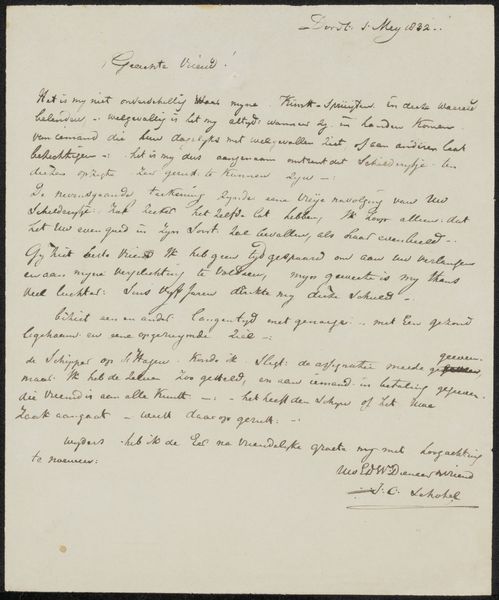 Dordt. 5 Mey 1832.
Geeerste Vriend!
Het is my niet onverschillig waar myne Kunst-Spruijten in deese waereld
belenden - welgevallig is het my altyd: wanneer zy in handen komen
van iemand die hun dagelyks met welgevallen ziet of aan anderen laat
bezichtigen -: het is my dus aangenaam omtrent dit Schilderytje ten
dezen opzigte zeer gerust te kunnen zyn -:
De nevensgaande teekening zynde eene vrije navolging van Uw
Schilderytje: zal zeker het zelfde lot hebben, Ik hoop alleen: dat
het Uw even goed in zyn Soort zal bevallen, als haar evenbeeld -.
Gy ziet beste Vriend Ik heb geen tyd gespaard om aan uw verlangen
en aan myne verplichting te voldoen, myn geweeten is my thans
veel lichter: Sins vyf Jaren drukte my deese Schuld -
een en ander Langen tyd met genoegen - met Een gezond
lighaam en eene opgeruymde Ziel -:
de Schipper op Konde ik de assignatie meede geeven
maar Ik heb de Zelve Zoo gesteld, en aan iemand in betaling gegeven
die Vriend is aan alle Kunst -: - het heeft den Schyn of het Uwe
Zaak aangaat - weest daar op gerust -:
wyders heb ik de Eer na vriendelyke groete my met hoogachting
te noemen:
Uw Ed Dienaar & Vriend
J. C. Schotel